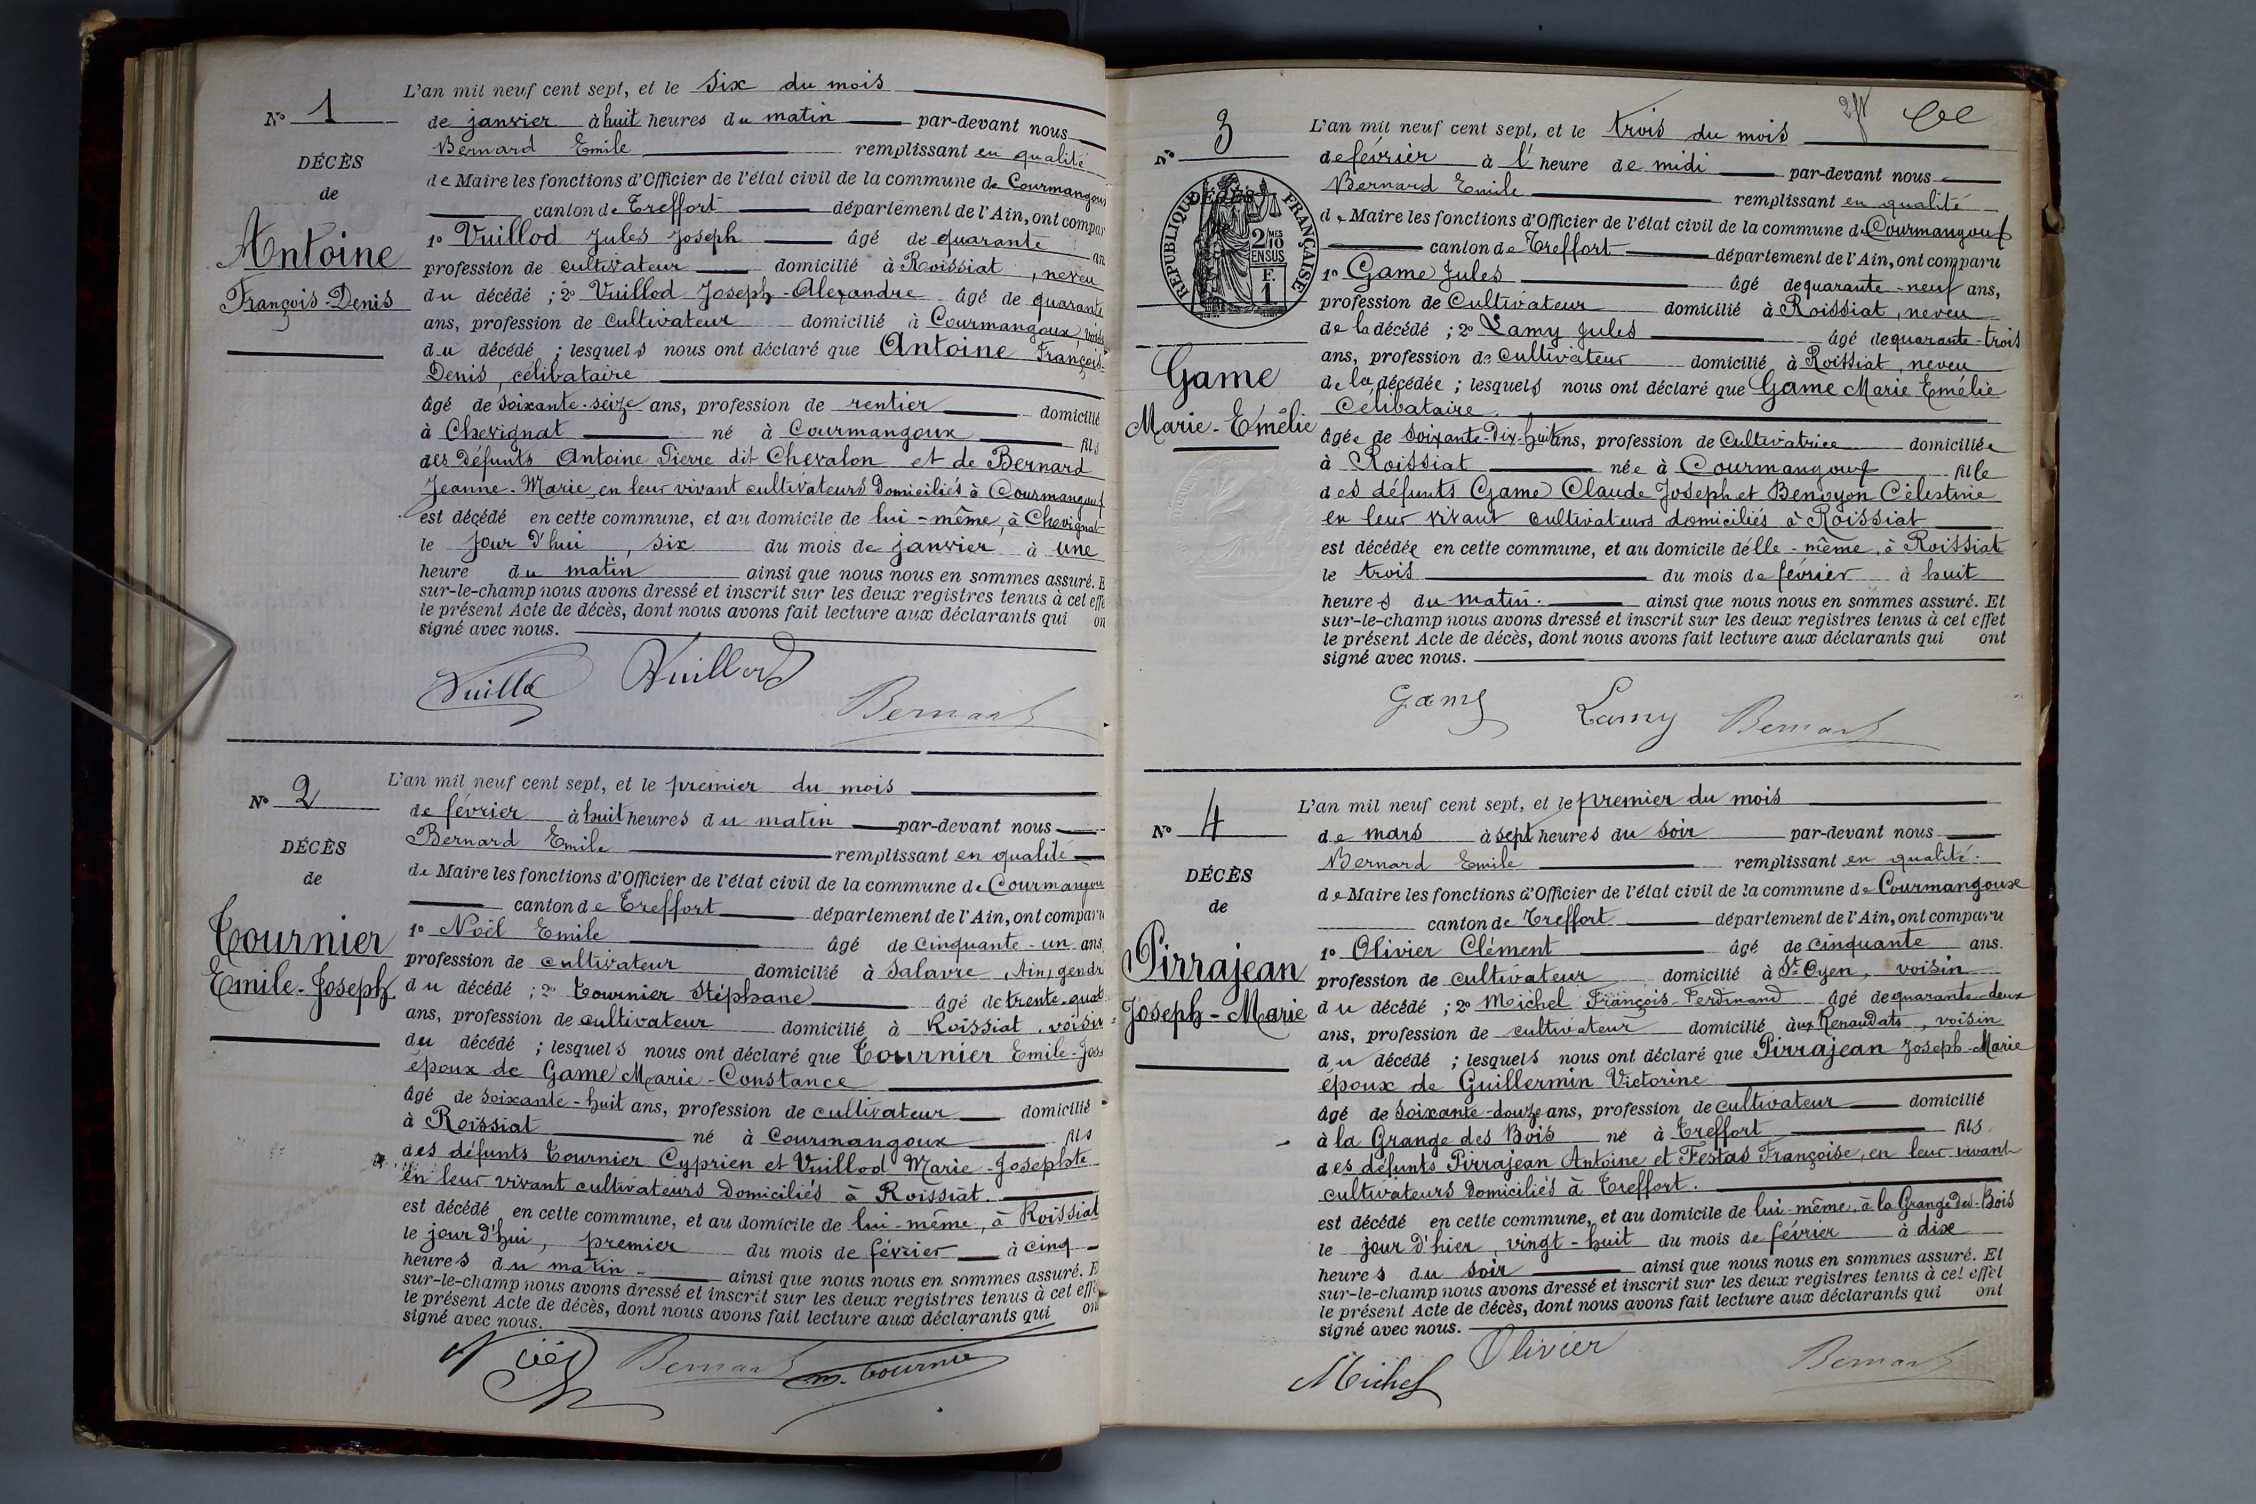 N° 1
DÉCÈS
de
Antoine
François-Denis
L'an mil neuf cent sept, et le six du mois
de janvier à huit heures du matin par-devant nous
Bernard Emile remplissant en qualité
de Maire les fonctions d'Officier de l'état civil de la commune de Courmangoux
canton de Treffort département de l'Ain, ont compar
1° Vuillod Jules Joseph âgé de quarante an
profession de cultivateur domicilié à Roissiat, neveu
du décédé ; 2° Vuillod Joseph-Alexandre âgé de quarante
ans, profession de cultivateur domicilié à Courmangoux, voisin
du décédé ; lesquels nous ont déclaré que Antoine François-
Denis, célibataire
âgé de soixante-seize ans, profession de rentier domicilié
à Chevignat né à Courmangoux fils
des défunts Antoine Pierre dit Chevalon et de Bernard
Jeanne-Marie, en leur vivant cultivateurs domiciliés à Courmangoux
est décédé en cette commune, et au domicile de lui-même, à Chevignat
le jour d'hui, six du mois de janvier à une
heure du matin ainsi que nous nous en sommes assuré. E
sur-le-champ nous avons dressé et inscrit sur les deux registres tenus à cet effe
le présent Acte de décès, dont nous avons fait lecture aux déclarants qui on
signé avec nous.
Vuillod Vuillod Bernard
N° 2
DÉCÈS
de
Tournier
Emile-Joseph
L'an mil neuf cent sept, et le premier du mois
de février à huit heures du matin par-devant nous
Bernard Emile remplissant en qualité
de Maire les fonctions d'Officier de l'état civil de la commune de Courmangou
canton de Treffort département de l'Ain, ont comparu
1° Noël Emile âgé de cinquante-un ans
profession de cultivateur domicilié à Salavre, Ain, gendr
du décédé ; 2° Tournier Stéphane âgé de trente-quat
ans, profession de cultivateur domicilié à Roissiat, voisin
du décédé ; lesquels nous ont déclaré que Tournier Emile-Jos
époux de Game Marie-Constance
âgé de soixante-huit ans, profession de cultivateur domicilié
à Roissiat né à Courmangoux fils
des défunts Tournier Cyprien et Vuillod Marie-Josephte
en leur vivant cultivateurs domiciliés à Roissiat.
est décédé en cette commune, et au domicile de lui-même, à Roissiat
le jour d'hui, premier du mois de février à cinq
heures du matin ainsi que nous nous en sommes assuré. E
sur-le-champ nous avons dressé et inscrit sur les deux registres tenus à cet effe
le présent Acte de décès, dont nous avons fait lecture aux déclarants qui ont
signé avec nous.
Noël Bernard Tournier
N° 3
DÉCÈS
RÉPUBLIQUE FRANÇAISE
2/10 EN SUS
1 F.
Game
Marie-Emélie
L'an mil neuf cent sept, et le trois du mois
de février à l'heure de midi par-devant nous
Bernard Emile remplissant en qualité
de Maire les fonctions d'Officier de l'état civil de la commune de Courmangoux
canton de Treffort département de l'Ain, ont comparu
1° Game Jules âgé de quarante-neuf ans,
profession de cultivateur domicilié à Roissiat, neveu
de la décédé ; 2° Lamy Jules âgé de quarante-trois
ans, profession de cultivateur domicilié à Roissiat, neveu
de la décédée ; lesquels nous ont déclaré que Game Marie Emélie
célibataire.
âgée de soixante-dix-huit ans, profession de cultivatrice domiciliée
à Roissiat née à Courmangoux fille
des défunts Game Claude Joseph et Benoyon Célestine
en leur vivant cultivateurs domiciliés à Roissiat
est décédée en cette commune, et au domicile d'elle-même, à Roissiat
le trois du mois de février à huit
heures du matin. ainsi que nous nous en sommes assuré. Et
sur-le-champ nous avons dressé et inscrit sur les deux registres tenus à cet effet
le présent Acte de décès, dont nous avons fait lecture aux déclarants qui ont
signé avec nous.
Game Lamy Bernard
N° 4
DÉCÈS
de
Pirrajean
Joseph-Marie
L'an mil neuf cent sept, et le premier du mois
de mars à sept heures du soir par-devant nous
Bernard Emile remplissant en qualité.
de Maire les fonctions d'Officier de l'état civil de la commune de Courmangoux
canton de Treffort département de l'Ain, ont comparu
1° Olivier Clément âgé de cinquante ans.
profession de cultivateur domicilié à St-Oyen, voisin
du décédé ; 2° Michel François-Ferdinand âgé de quarante-deux
ans, profession de cultivateur domicilié aux Renaudats, voisin
du décédé ; lesquels nous ont déclaré que Pirrajean Joseph-Marie
époux de Guillermin Victorine
âgé de soixante-douze ans, profession de cultivateur domicilié
à la Grange des Bois né à Treffort fils
des défunts Pirrajean Antoine et Festas Françoise, en leur vivant
cultivateurs domiciliés à Treffort.
est décédé en cette commune, et au domicile de lui-même, à la Grange des-Bois
le jour d'hier, vingt-huit du mois de février à dix
heures du soir ainsi que nous nous en sommes assuré. Et
sur-le-champ nous avons dressé et inscrit sur les deux registres tenus à cet effet
le présent Acte de décès, dont nous avons fait lecture aux déclarants qui ont
signé avec nous.
Michel Olivier Bernard